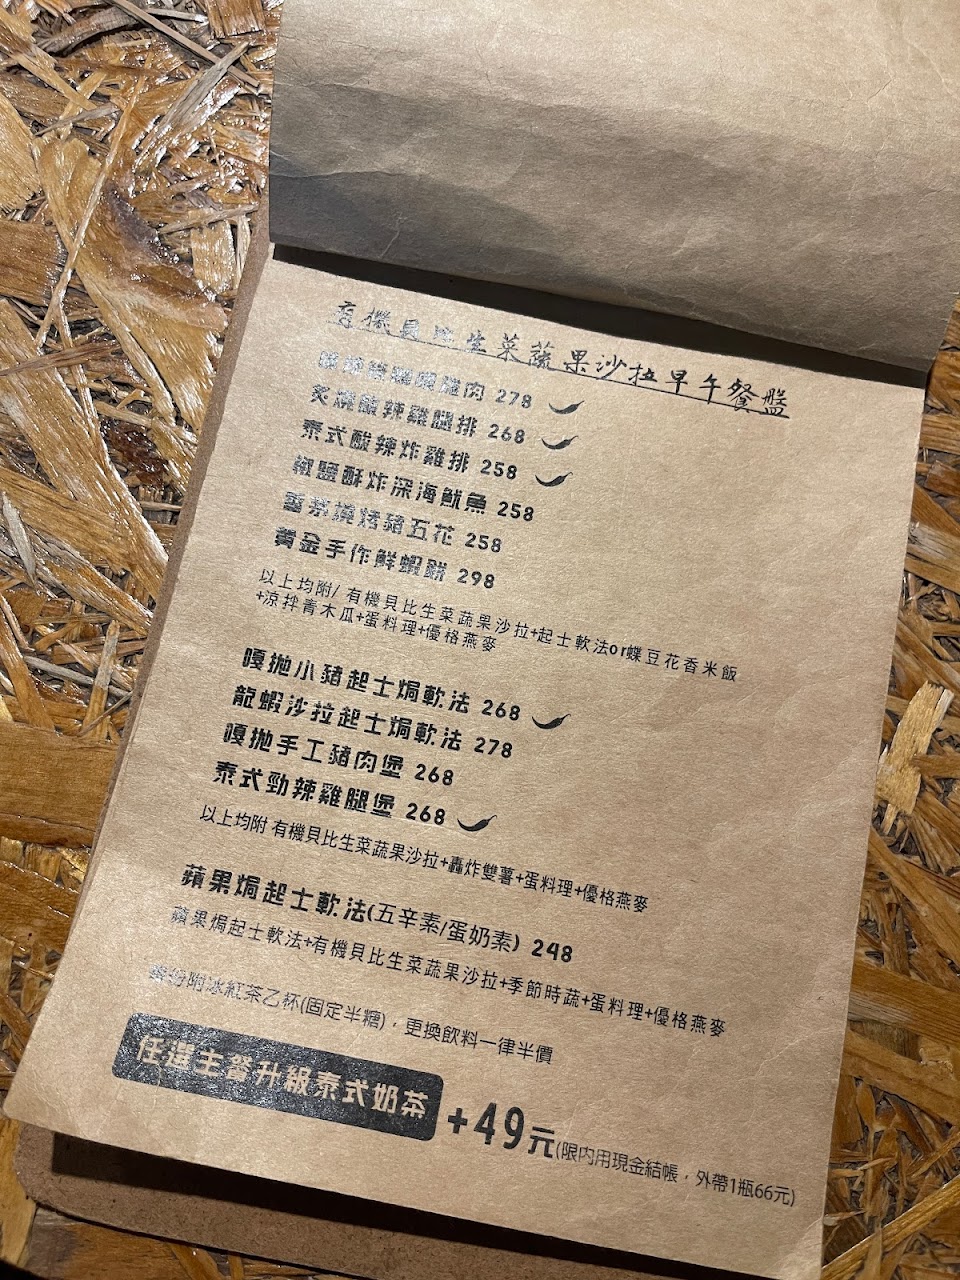 有機貝比生菜蔬果沙拉早午餐盤
雞肉 278
炙燒酸辣雞腿排 268
泰式酸辣炸雞排 258
椒鹽酥炸深海魷魚 258
香茅燒烤豬五花 258
黃金手作鮮蝦餅 298
以上均附/ 有機貝比生菜蔬果沙拉+起士軟法or蝶豆花香米飯
+涼拌青木瓜+蛋料理+優格燕麥
嘎拋小豬起士焗軟法 268
龍蝦沙拉起士焗軟法 278
嘎拋手工豬肉堡 268
泰式勁辣雞腿堡 268
以上均附 有機貝比生菜蔬果沙拉+轟炸雙薯+蛋料理+優格燕麥
蘋果焗起士軟法(五辛素/蛋奶素) 248
蘋果焗起士軟法+有機貝比生菜蔬果沙拉+季節時蔬+蛋料理+優格燕麥
附冰紅茶乙杯(固定半糖)，更換飲料一律半價
任選主餐升級泰式奶茶 +49元(限內用現金結帳，外帶1瓶66元)